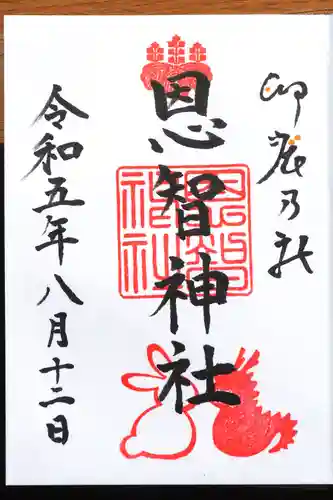 卯辰乃祈
恩智神社
恩智神社
令和五年八月十二日